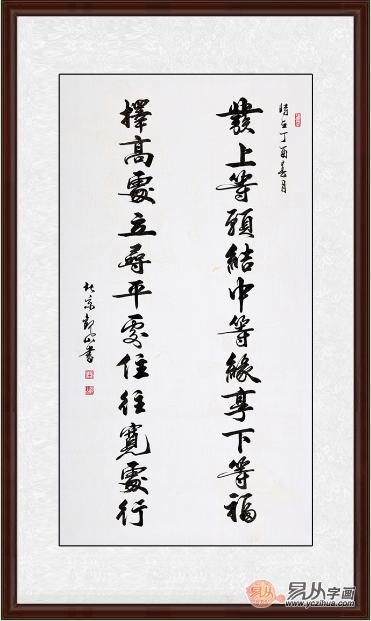 時在丁酉春月
發上等願結中等緣享下等福
擇高處立尋平處住往寬處行
北京書
易从字画
www.yczihua.com